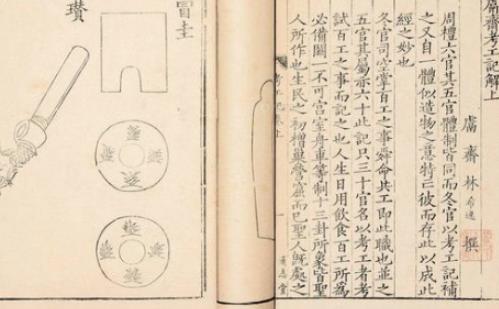 齋考工記解上
鬳齋林希逸撰
周禮六官其五官體制皆同而冬官以考工記補
之又自一體似造物之意特亡彼而存此以成此
經之妙也
冬官司空掌百工之事舜命共工即此職也並之
五官其屬亦六十此記只三十官名以考工者考
試百工之事而記之也人生日用飲食百工所為
必備闕一不可宮室舟車等制十三卦所象皆聖
人所作也生民之初橧巢營窟而已聖人既處之
一
冒圭
瓚